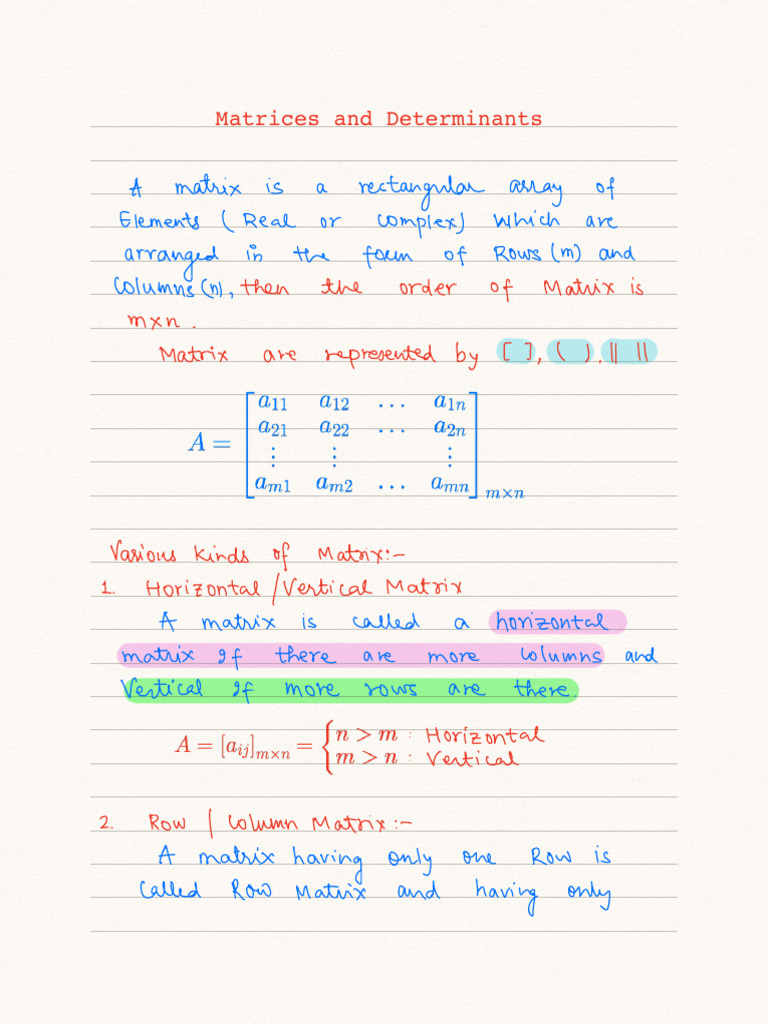 Matrices and Determinants
A matrix is a rectangular array of
Elements ( Real or complex) which are
arranged in the form of Rows (m) and
Columns (n), then the order of Matrix is
m×n.
Matrix are represented by [ ], ( ), || ||
A = [a₁₁ a₁₂ … a₁ₙ
a₂₁ a₂₂ … a₂ₙ
⋮ ⋮ ⋮
aₘ₁ aₘ₂ … aₘₙ]ₘ×ₙ
Various kinds of Matrix:-
1. Horizontal / Vertical Matrix
A matrix is called a horizontal
matrix If there are more columns and
Vertical If more rows are there.
A = [aᵢⱼ]ₘ×ₙ = { n > m : Horizontal
m > n : Vertical
2. Row / Column Matrix:-
A matrix having only one Row is
called Row Matrix and having only